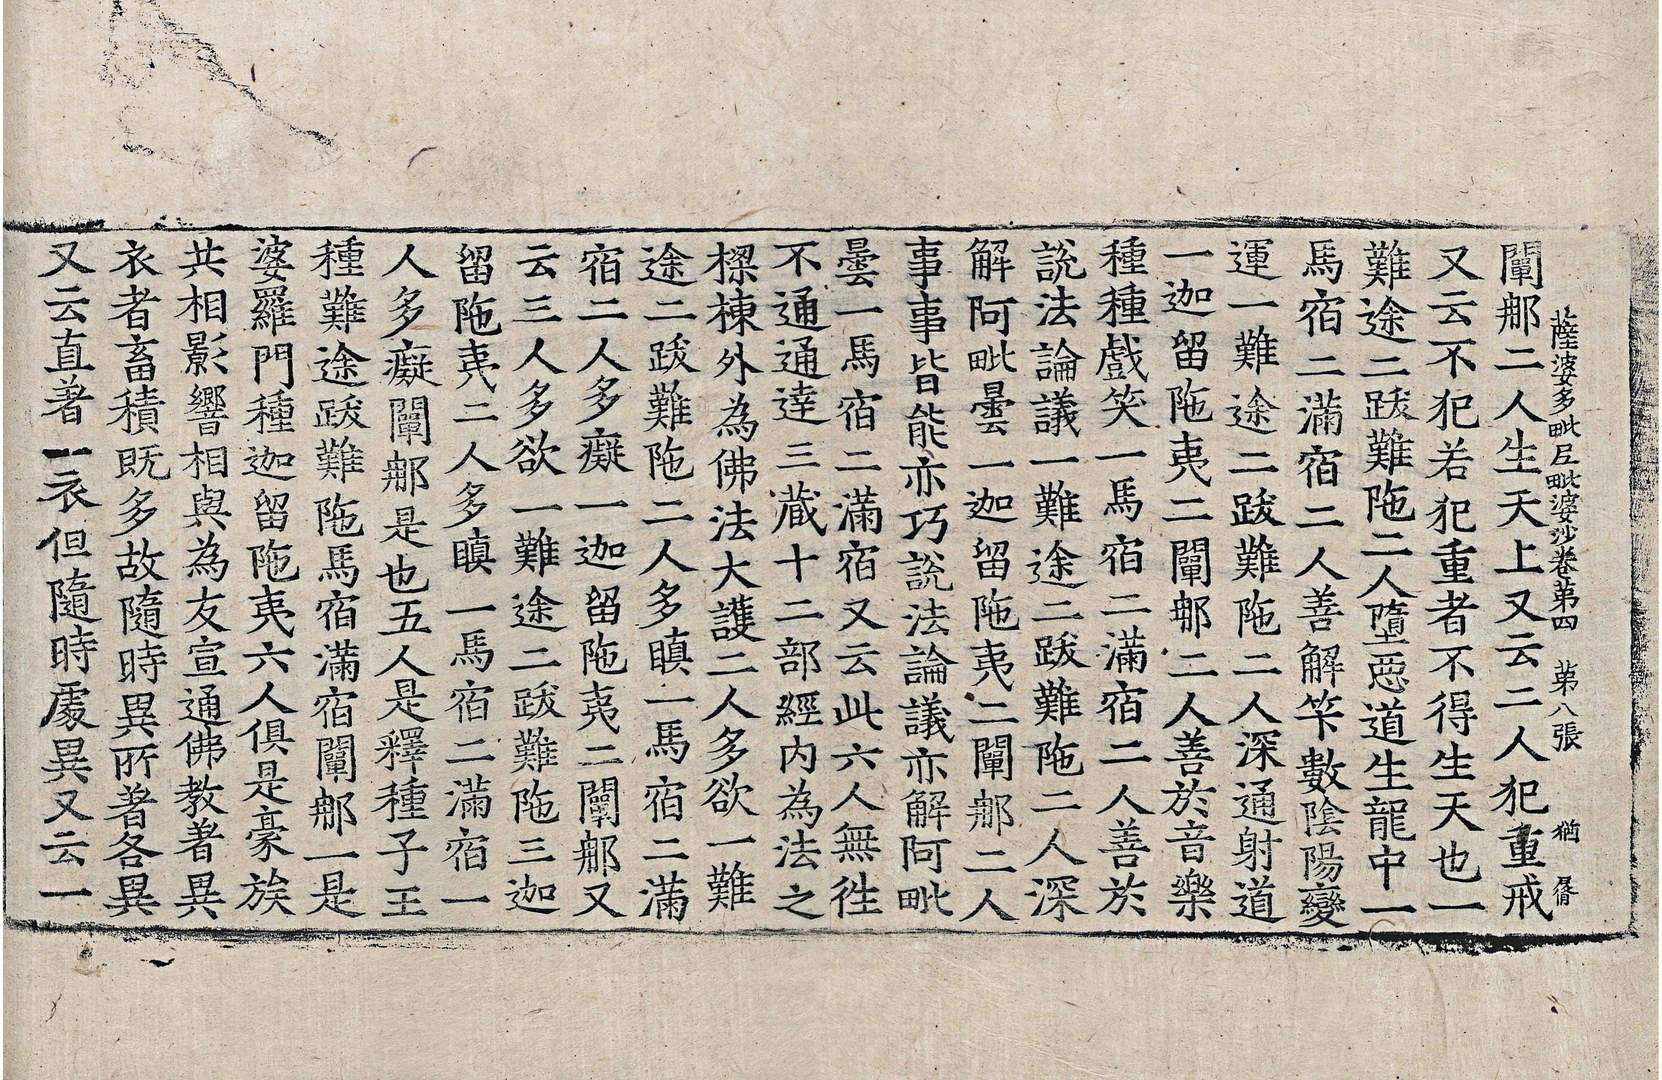 薩婆多毗尼毗婆沙卷第四 第八張 猶
闡那二人生天上又云二人犯重戒
又云不犯若犯重者不得生天也一
難途二跋難陁二人墮惡道生龍中一
馬宿二滿宿二人善解筭數陰陽變
運一難途二跋難陁二人深通射道
一迦留陁夷二闡那二人善於音樂
種種戲笑一馬宿二滿宿二人善於
說法論議一難途二跋難陁二人深
解阿毗曇一迦留陁夷二闡那二人
事事皆能亦巧說法論議亦解阿毗
曇一馬宿二滿宿又云此六人無徃
不通通達三藏十二部經內為法之
樑棟外為佛法大護二人多欲一難
途二跋難陁二人多瞋一馬宿二滿
宿二人多癡一迦留陁夷二闡那又
云三人多欲一難途二跋難陁三迦
留陁夷二人多瞋一馬宿二滿宿一
人多癡闡那是也五人是釋種子王
種難途跋難陁馬宿滿宿闡那一是
婆羅門種迦留陁夷六人俱是豪族
共相影響相與為友宣通佛教著異
衣者畜積既多故隨時異所著各異
又云直著一衣但隨時處異又云一